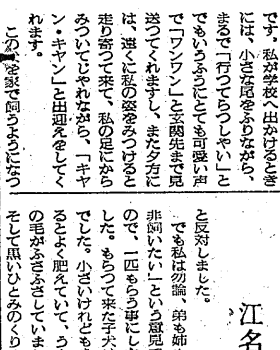 です。私が学校へ出かけるとき
には、小さな尾をふりながら、
まるで「行つてらつしやい」と
でもいうふうにとても可愛い声
で「ワンワン」と玄関先まで見
送つてくれますし、また夕方に
は、遠くに私の姿をみつけると
走り寄つて来て、私の足にから
みついてじやれながら、「キヤ
ン・キヤン」と出迎えをしてく
れます。
この を家で飼うようになつ
江名
と反対しました。
でも私は勿論、弟も姉
非飼いたい」という意見
ので、一匹もらう事にし
した。もらつて来た子犬
でした。小さいけれども
るとよく肥えていて、う
の毛がふさふさしていま
そして黒いひとみのくり